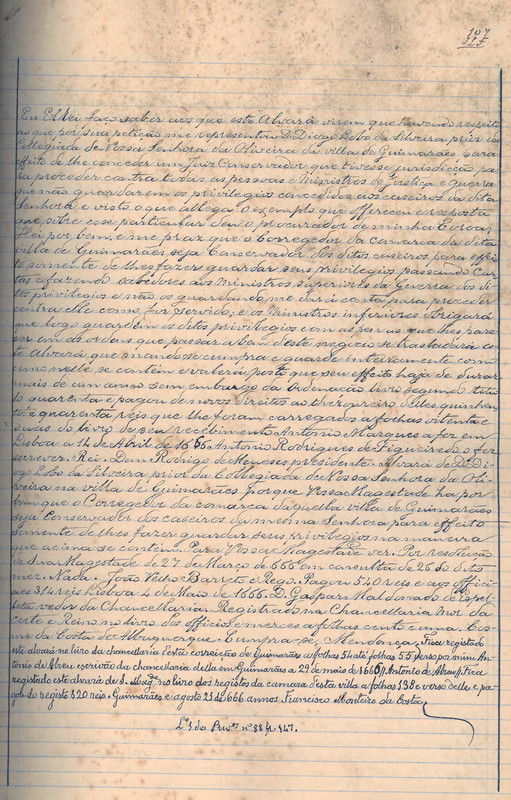 107
Eu El Rei faço saber aos que este Alvará virem que havendo respeito
ao que por sua petição me representou D. Diogo Lobo da Silveira prior da
Collegiada de Nossa Senhora da Oliveira da villa de Guimarães, para
effeito de lhe conceder um Juiz Conservador que tivesse jurisdicção pa
ra proceder contra todas as pessoas e Ministros de Justiça e Guerra
que não guardarem os privilegios concedidos aos caseiros da dita
Senhora e visto o que allega o exemplo que offereceu e resposta
que sobre esse particular deu o procurador de minha Coroa;
Hei por bem, e me praz que o Corregedor da comarca da dita
villa de Guimarães seja Conservador dos ditos caseiros para effei
to somente de lhes fazer guardar seus privilegios passando Car
tas e fazendo sabedores aos Ministros superiores da Guerra dos di
tos privilegios e não os guardando me dará conta para proceder
contra elle como for servido; e os Ministros inferiores obrigará
que logo guardem os ditos privilegios com as penas que lhes pare
cer em as ordens que passar a bem deste negocio se trasladará es
te Alvará que mando se cumpra e guarde inteiramente como
como nelle se contém e valerá posto que seu effeito haja de durar
mais de um anno sem embargo da Ordenação livro segundo titu
lo quarenta e pagou de novos direitos ao thesoureiro delles quinhen
tos e quarenta réis que lhe foram carregados a folhas oitenta e
duas do livro de seu recebimento Antonio Marques a fez em
Lisboa a 14 de Abril de 1666. Antonio Rodrigues de Figueiredo o fez
escrever. Rei. Dom Rodrigo de Meneses presidente. Alvará de D. Di
ogo Lobo da Silveira prior da Collegiada de Nossa Senhora da Oli
veira na villa de Guimarães porque Vossa Magestade ha por
bem que o Corregedor da comarca daquella villa de Guimarães
seja Conservador dos caseiros da mesma Senhora para effeito
somente de lhes fazer guardar seus privilegios na maneira
que acima se contém. Para Vossa Magestade ver. Por resolução
de Sua Magestade de 27 de Março de 666 em consulta de 26 do dito
mez. Nada. João Velho Barreto e Rego. Pagou 540 reis e aos offici
aes 314 reis Lisboa 4 de Maio de 1666. D. Gaspar Maldonado de Espel
veador da Chancellaria. Registado na Chancellaria mor da
corte e Reino no livro dos officios e mercês a folhas cento e uma. Cos
me da Costa de Albuquerque. Cumpra-se, Mendonça. Fica registado
este alvará no livro da chancellaria desta correição de Guimarães a folhas 54 até folhas 55 verso por mim An
tonio de Abreu escrivão da chancellaria della em Guimarães a 29 de maio de 1666 Antonio de Abreu Fica
registado este alvará de S. Mag. no livro dos registos da camara desta villa a folhas 138 e verso delle e pa
gou do registo 120 reis. Guimarães e agosto 23 de 666 annos. Francisco Monteiro da Costa.
L.º 1 do Priv.os nº 88 fl. 147.